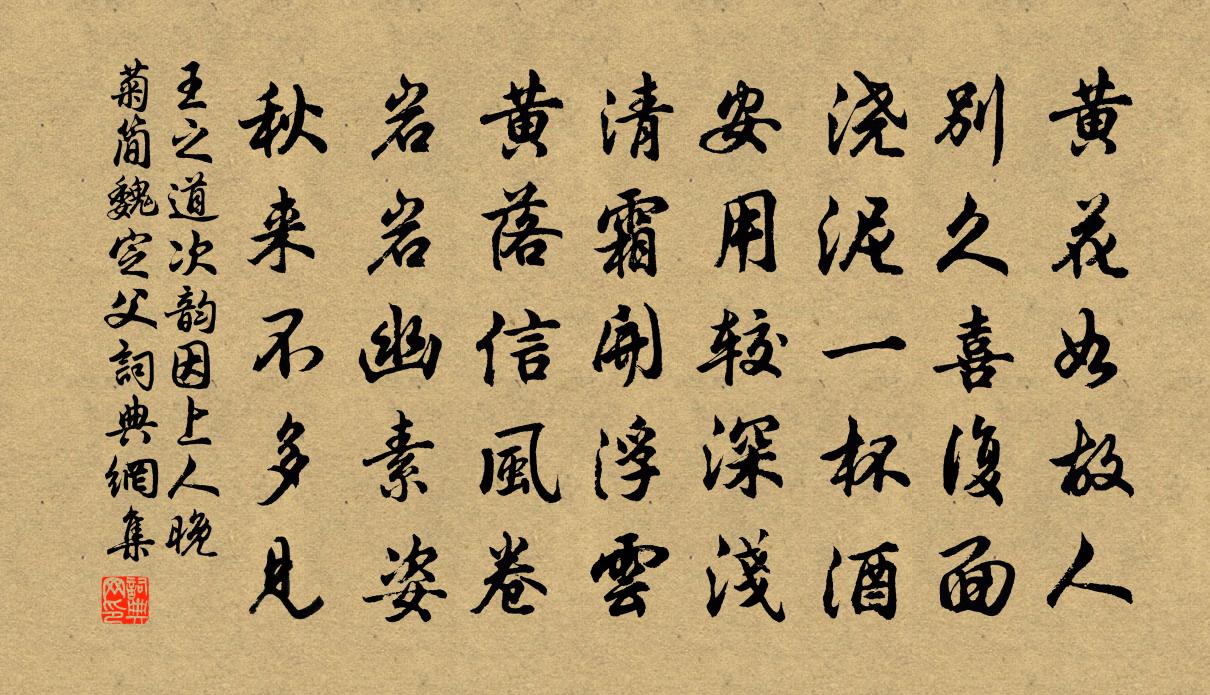 黄花如故人
别久喜復面
浇泥一杯酒
安用较深淺
清霜開浮雲
黄落信風卷
岩岩幽素姿
秋来不多見
王之道次韵因上人晚
菊简魏定父詞典網集
詞典网印